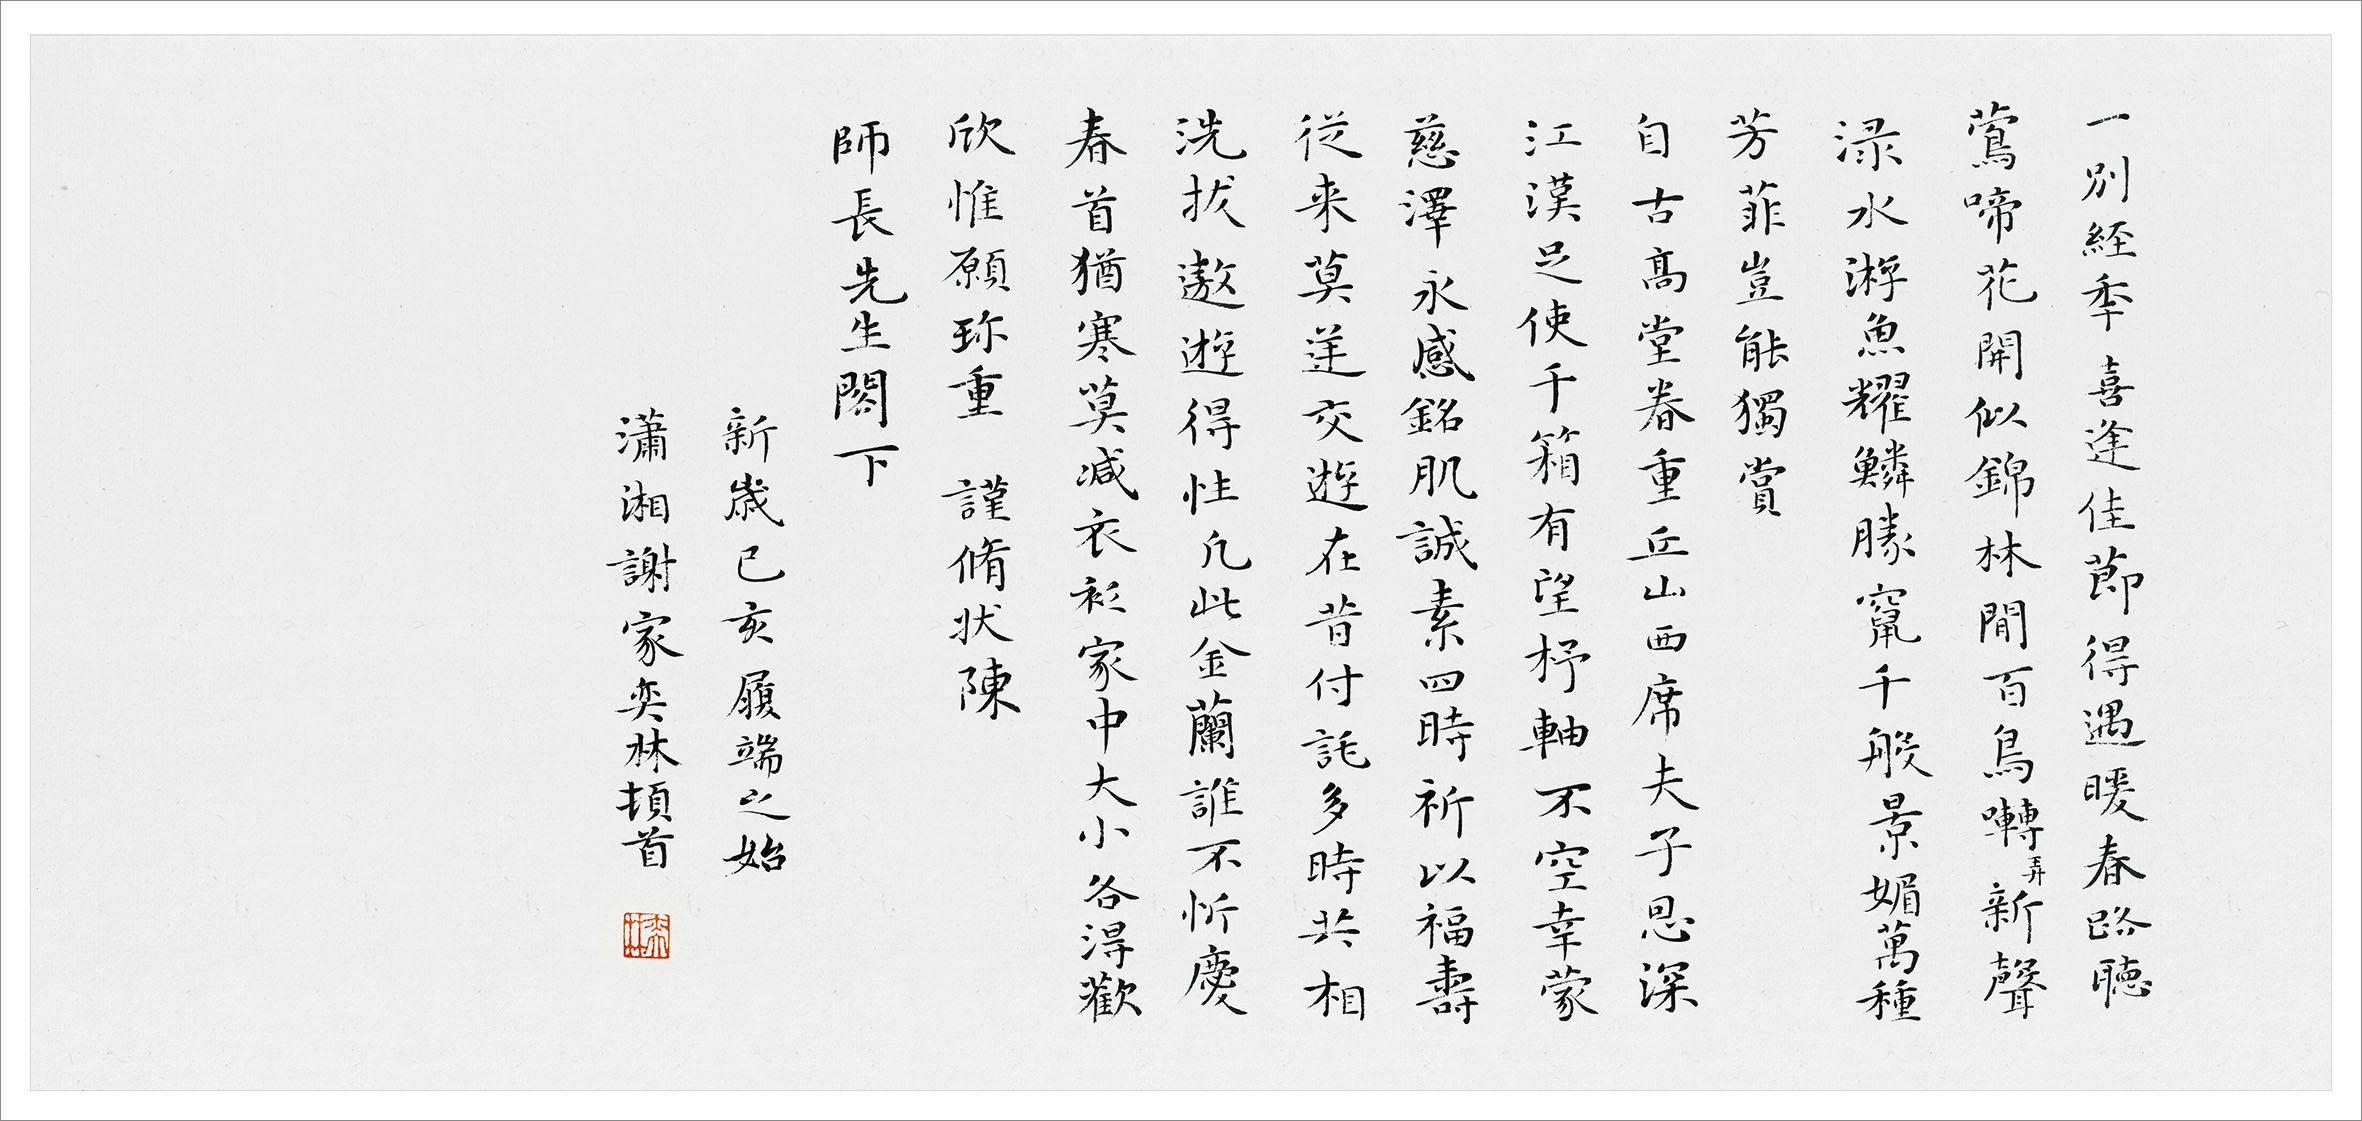 一別經季喜逢佳節得遇暖春路聽
鶯啼花開似錦林間百鳥囀弄新聲
渌水游魚耀鱗勝竄千般景媚萬種
芳菲豈能獨賞
自古高堂眷重丘山西席夫子恩深
江漢足使千箱有望杼軸不空幸蒙
慈澤永感銘肌誠素四時祈以福壽
從来莫逆交遊在昔付託多時共相
洗拔遨遊得性凡此金蘭誰不忻慶
春首猶寒莫減衣衫家中大小各得歡
欣惟願珎重 謹脩状陳
師長先生閤下
新歲已亥履端之始
瀟湘謝家奕林頓首
奕林